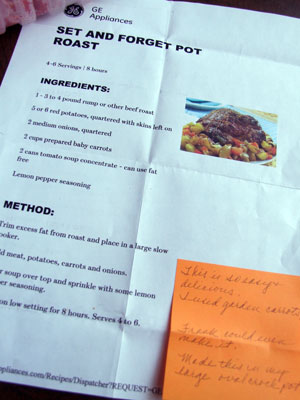 GE
Appliances
SET AND FORGET POT
ROAST
4-6 Servings | 8 hours
INGREDIENTS:
1 - 3 to 4 pound rump or other beef roast
5 or 6 red potatoes, quartered with skins left on
2 medium onions, quartered
2 cups prepared baby carrots
2 cans tomato soup concentrate - can use fat
free
Lemon pepper seasoning
METHOD:
Trim excess fat from roast and place in a large slow
ooker.
d meat, potatoes, carrots and onions.
r soup over top and sprinkle with some lemon
per seasoning.
on low setting for 8 hours. Serves 4 to 6.
ppliances.com/Recipes/Dispatcher?REQUEST=GE
This is so easy &
delicious
I used garden carrots
Frank could even
make it.
Made this in my
large oval crock pot